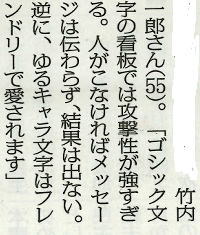 竹内
一郎さん(55)。「ゴシック文
字の看板では攻撃性が強すぎ
る。人がこなければメッセー
ジは伝わらず、結果は出ない。
逆に、ゆるキャラ文字はフレ
ンドリーで愛されます」